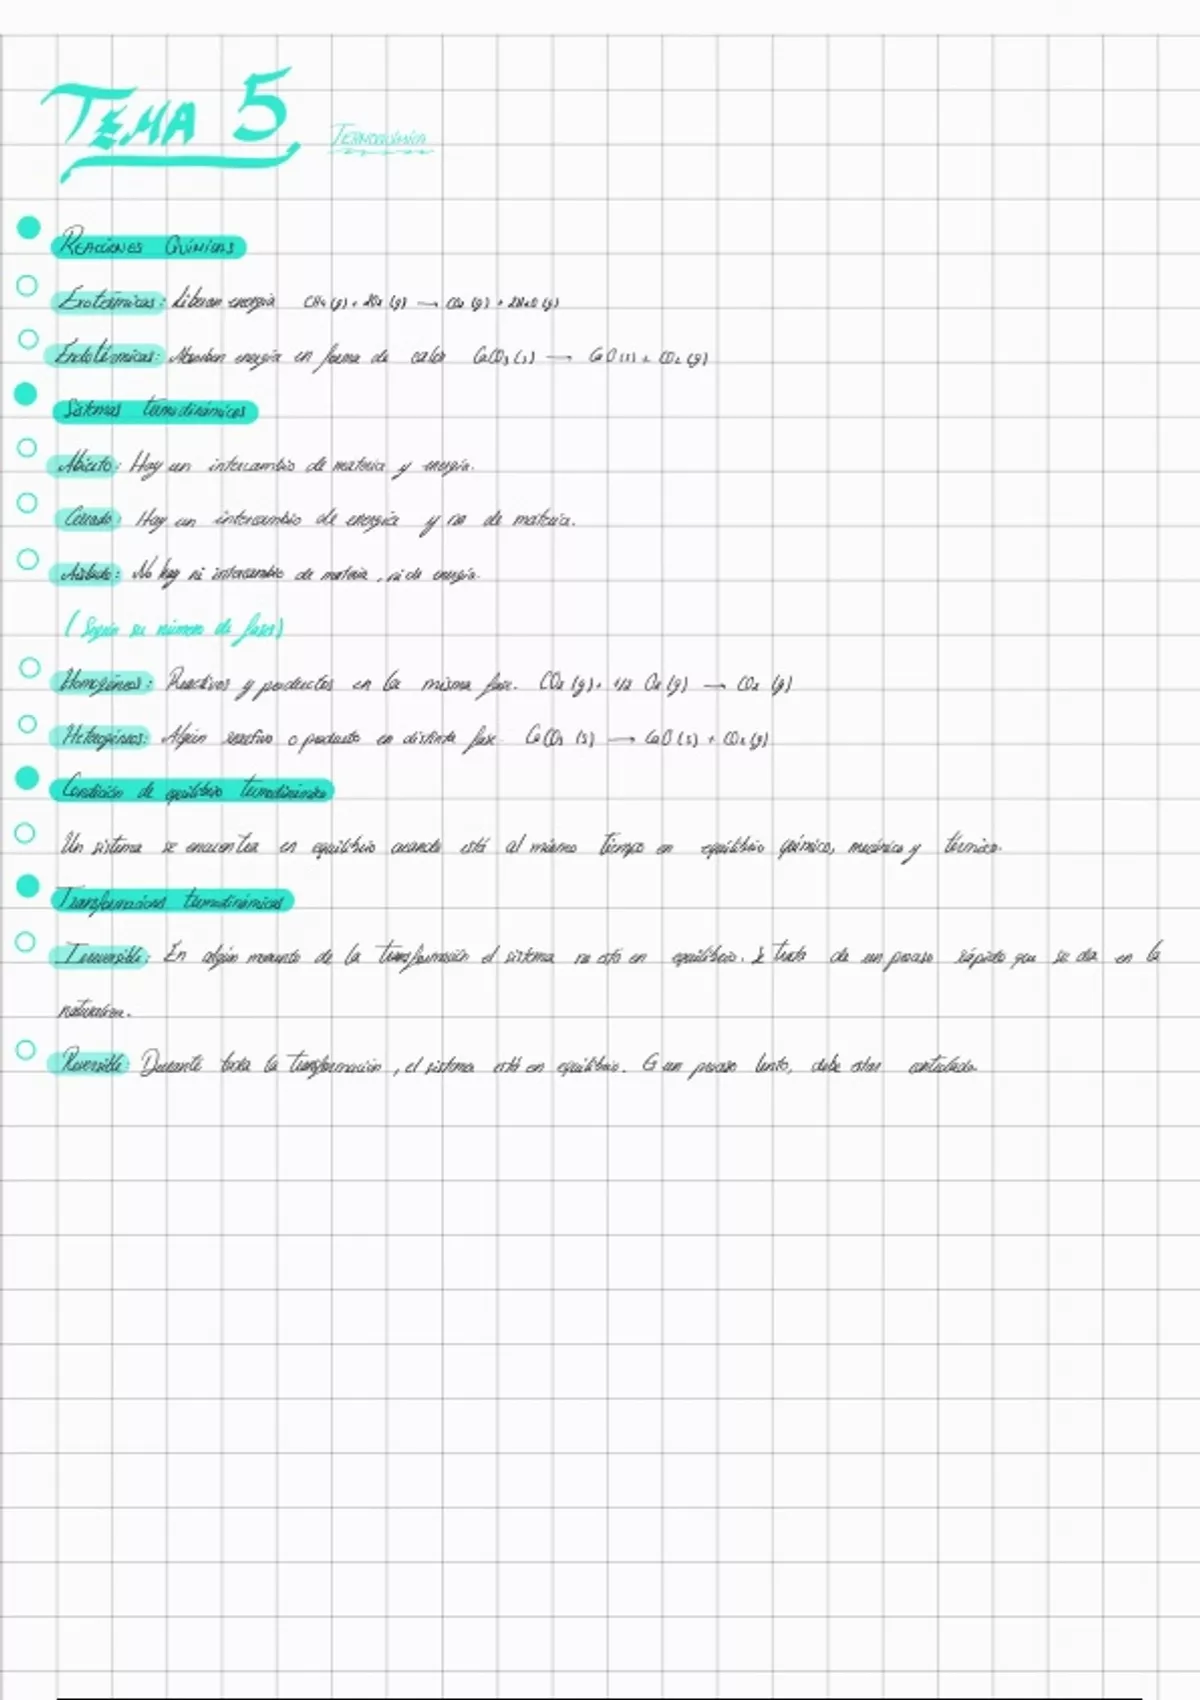 TEMA 5 TERMOQUÍMICA
REACCIONES QUÍMICAS
Exotérmicas: Liberan energía CH4 (g) + 2O2 (g) → CO2 (g) + 2H2O (g)
Endotérmicas: Absorben energía en forma de calor CaCO3 (s) → CaO (s) + CO2 (g)
Sistemas termodinámicos
Abierto: Hay un intercambio de materia y energía.
Cerrado: Hay un intercambio de energía y no de materia.
Aislado: No hay ni intercambio de materia, ni de energía.
(Según su número de fases)
Homogéneos: Reactivos y productos en la misma fase. CO2 (g) + 1/2 O2 (g) → CO2 (g)
Heterogéneos: Algún reactivo o producto en distinta fase. CaCO3 (s) → CaO (s) + CO2 (g)
Condición de equilibrio termodinámico
Un sistema se encuentra en equilibrio cuando está al mismo tiempo en equilibrio químico, mecánico y térmico.
Transformaciones termodinámicas
Irreversible: En algún momento de la transformación el sistema no está en equilibrio. Se trata de un proceso rápido que se da en la
naturaleza.
Reversible: Durante toda la transformación, el sistema está en equilibrio. Es un proceso lento, debe estar controlado.